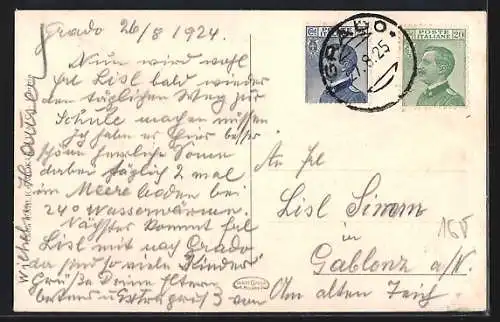 Grado 26/8 1924.
Nun wird wohl
frl Lisl bald wieder
den täglichen Weg zur
Schule machen müssen
Ich habe es hier besser
schöne herrliche Sonne
dabei täglich 2 mal
im Meere baden bei
24° Wasserwärme.
Nächstes kommt frl
Lisl mit nach Grado
da sind so viele Kinder
Grüße Deine Eltern
bestens u. von
POSTE ITALIANE
GRADO
27.8.25
An Frl
Lisl Simm
in
Gablonz a/N.
Am alten Teich
165